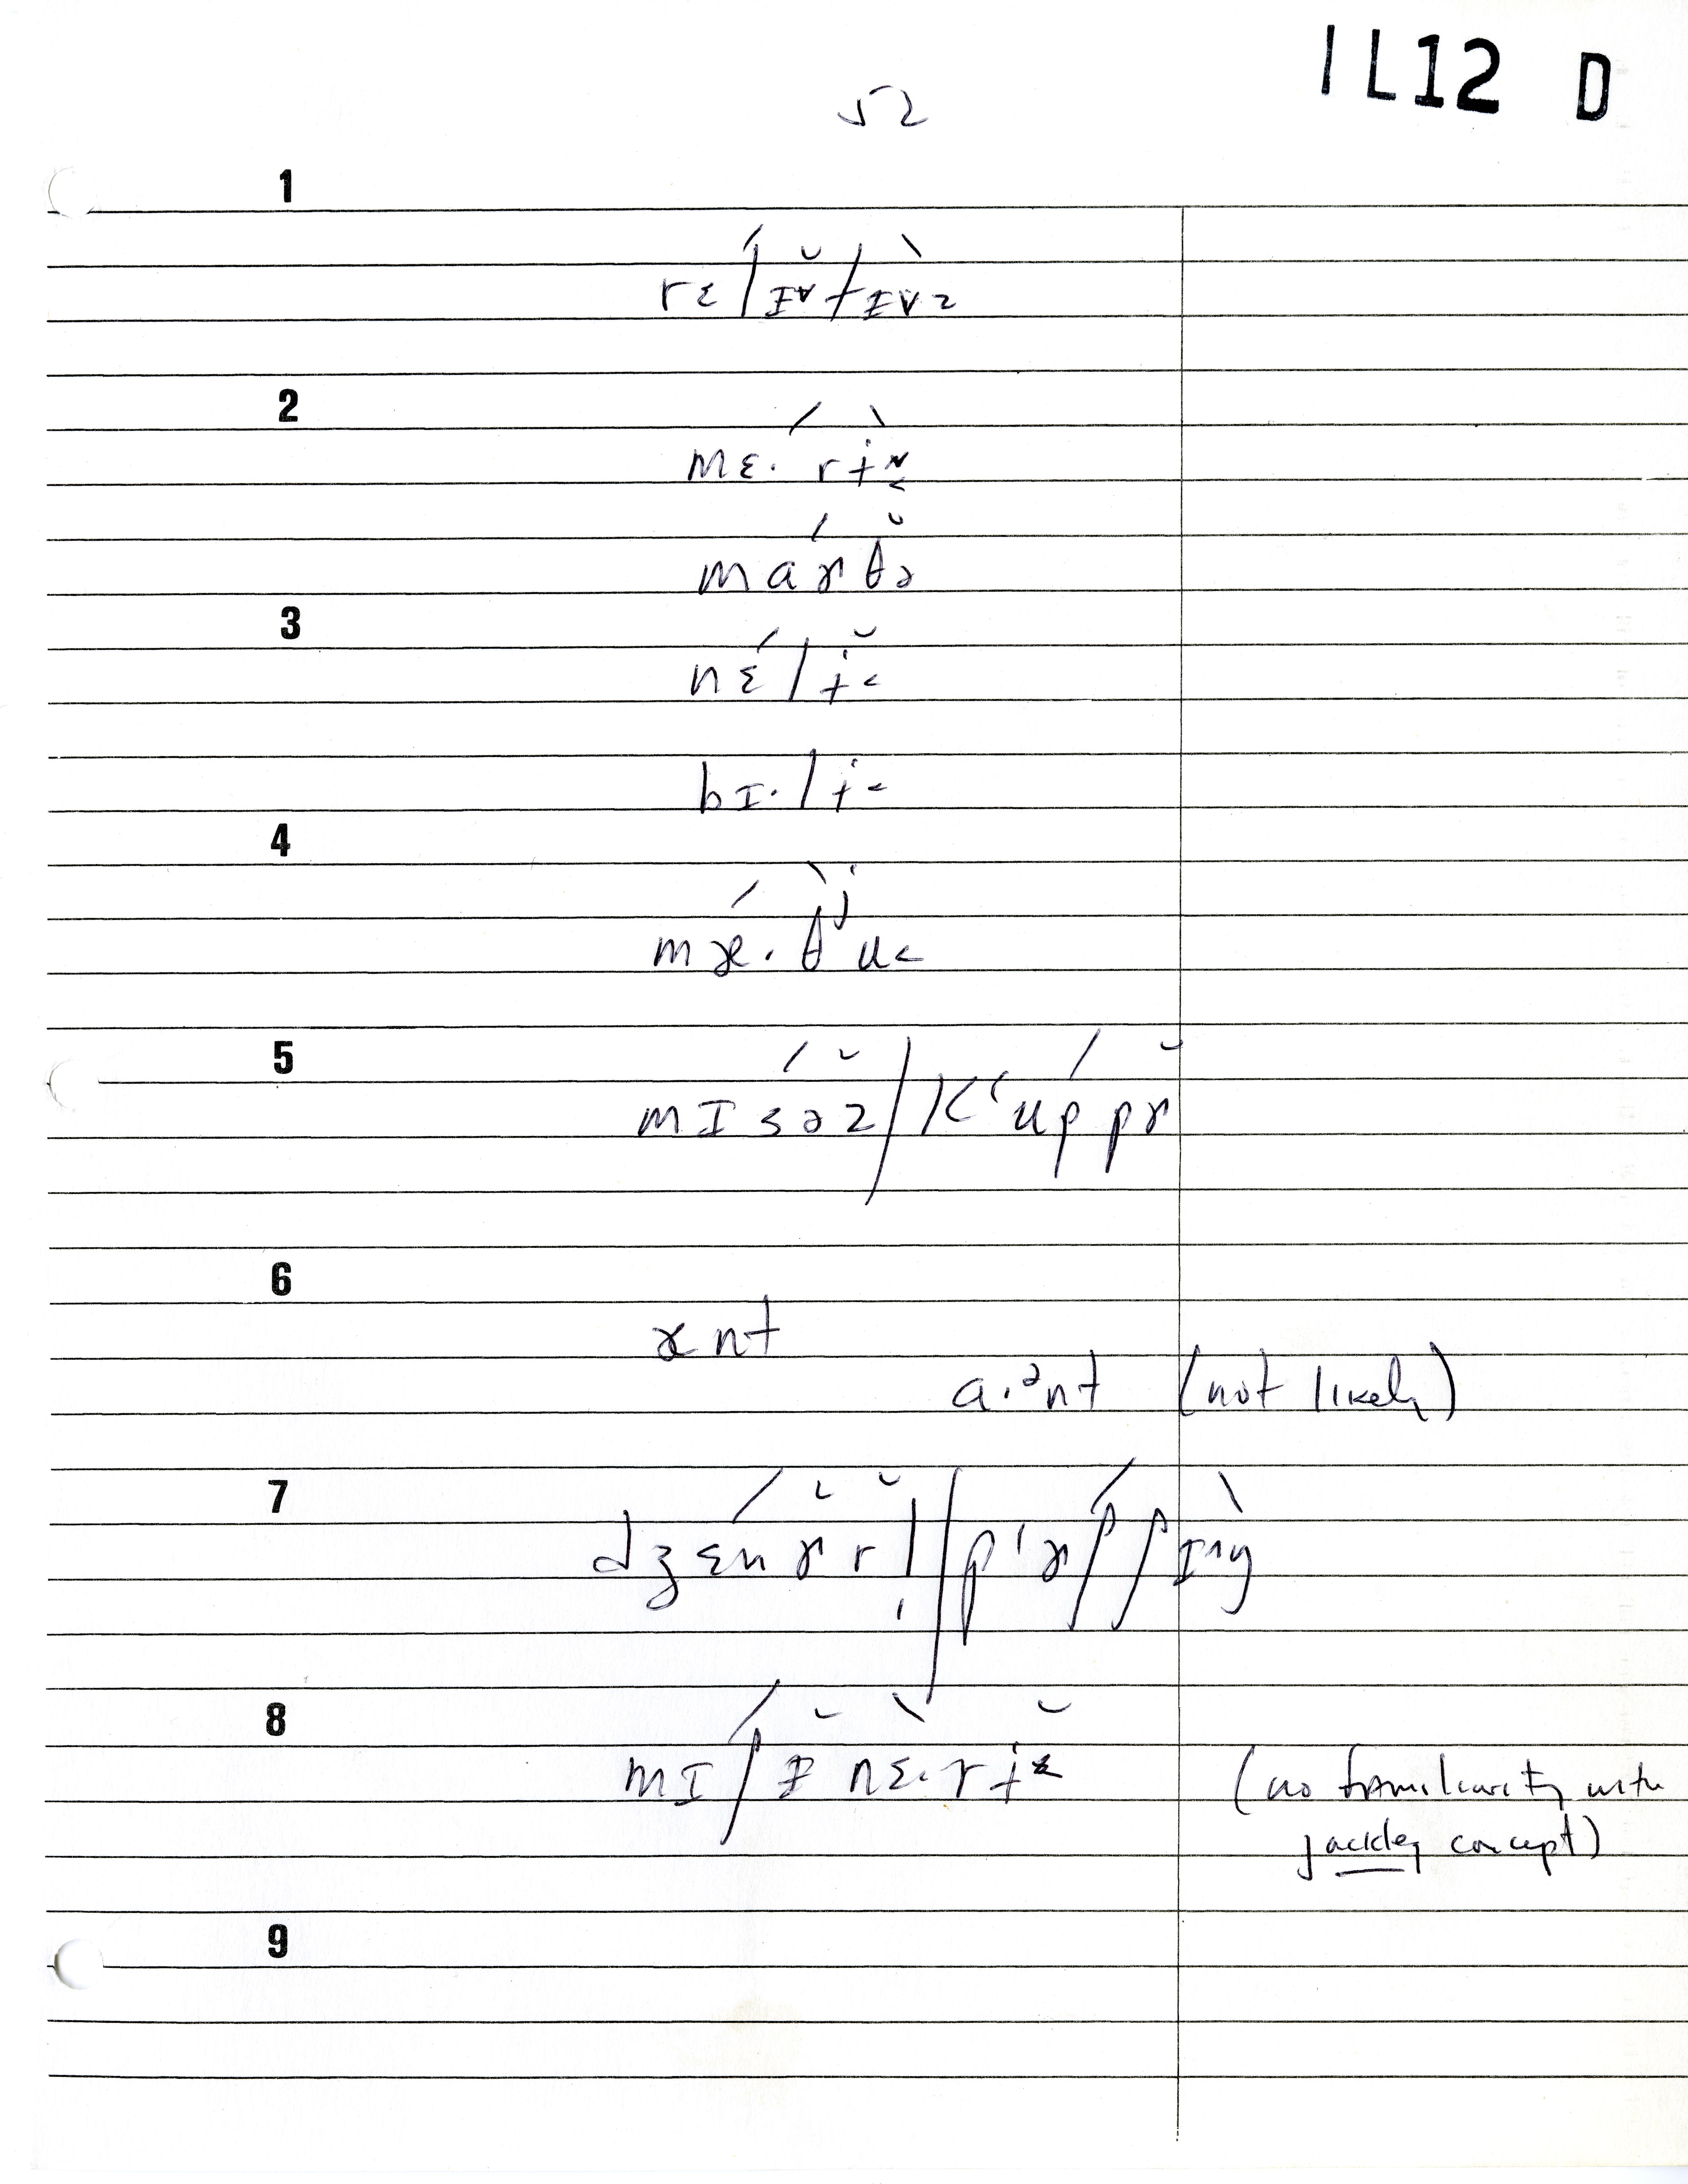 IL12 D
52
1
rɛlɪtɪvz
2
mɛ. ri
marθə
3
nɛli
bɪ.li
4
mæ.θju
5
mɪsəz/k‘uppɚ
6
ænt
a.ᵊnt (not likely)
7
dʒɛnɚrl̩/p‘ɚʃʃɪŋ
8
mɪʃɪnɛ.ri (no familiarity with
jackleg concept)
9